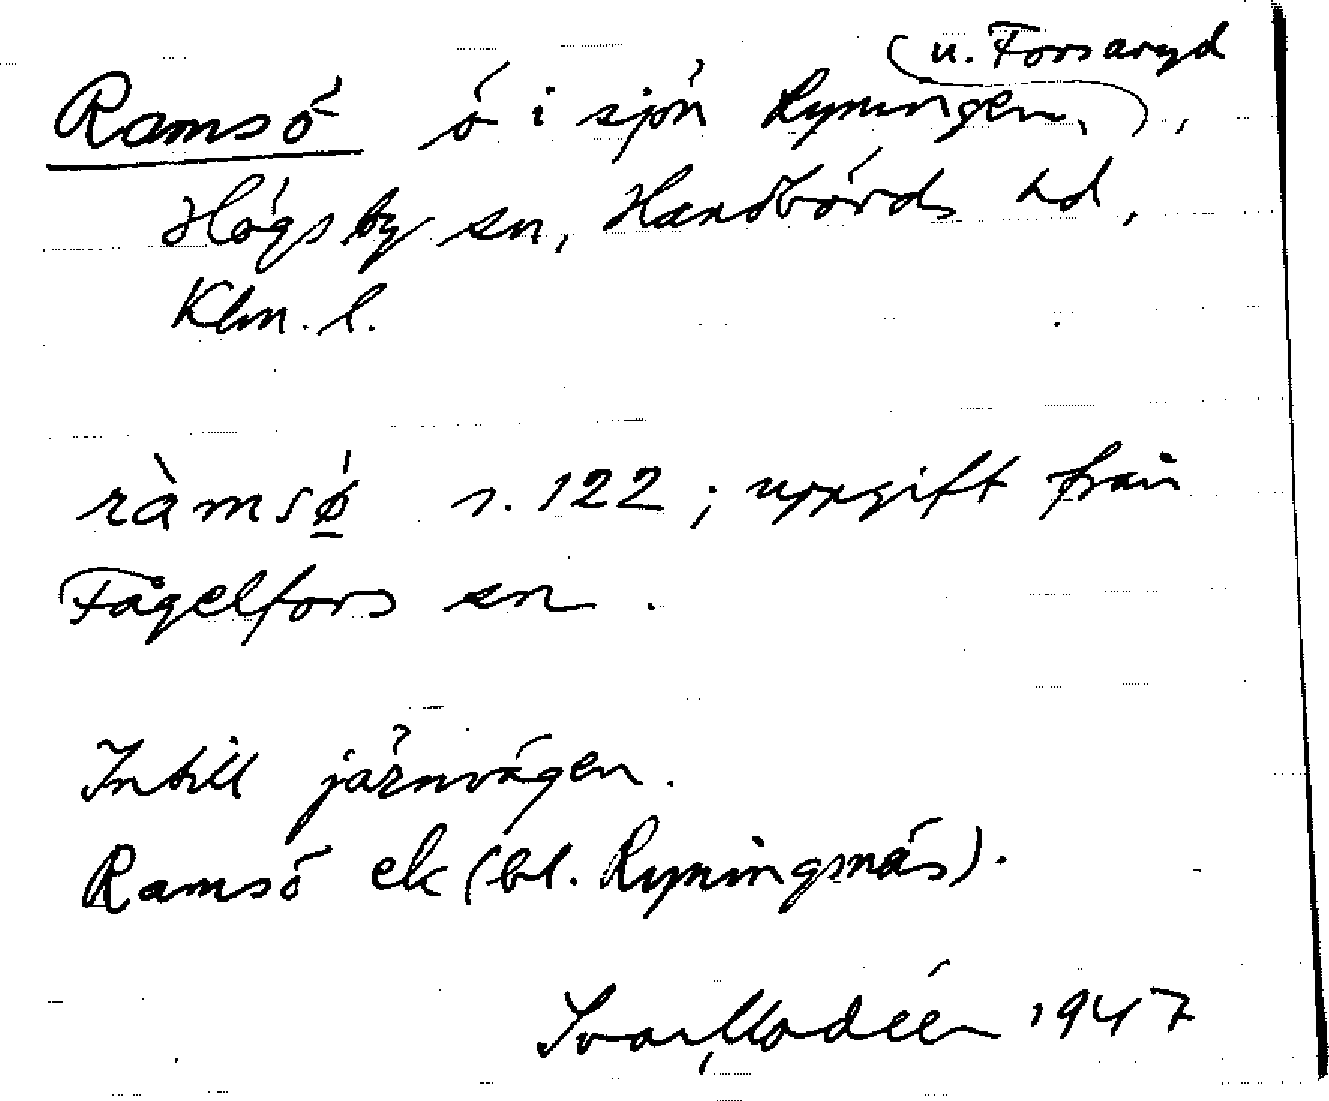 (u. Forsaryd
Ramsö ö i sjön Ryningen, ),
Högsby sn, Handbörds hd,
Klm. l.
ràmsǿ̱ s. 122 ; uppgift från
Fågelfors sn .
Intill järnvägen.
Ramsö ek (bl. Ryningsnäs).
Ivar Modéer 1947